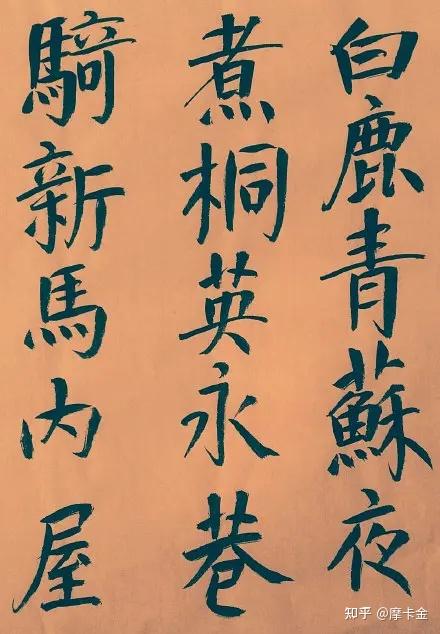 白鹿青蘇夜
煮桐英永巷
騎新馬内屋
知乎 @摩卡金